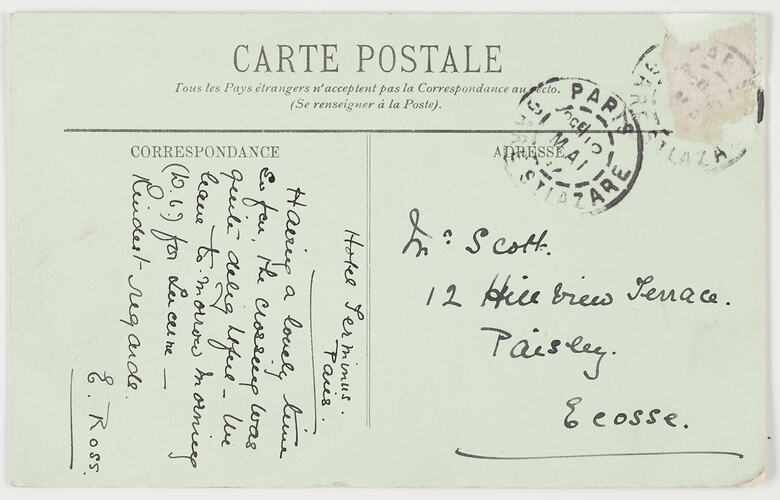 CARTE POSTALE
Tous les Pays étrangers n'acceptent pas la Correspondance au recto.
(Se renseigner à la Poste).
CORRESPONDANCE
ADRESSE
PARIS
MAI
ST LAZARE
ST LAZA
Hotel Terminus.
Paris.
Having a lovely time
so far, the crossing was
quite delightful - We
leave to-morrow morning
(D.V.) for Lucerne -
Kindest regards.
E. Ross.
Mrs Scott.
12 Hill View Terrace.
Paisley.
Ecosse.